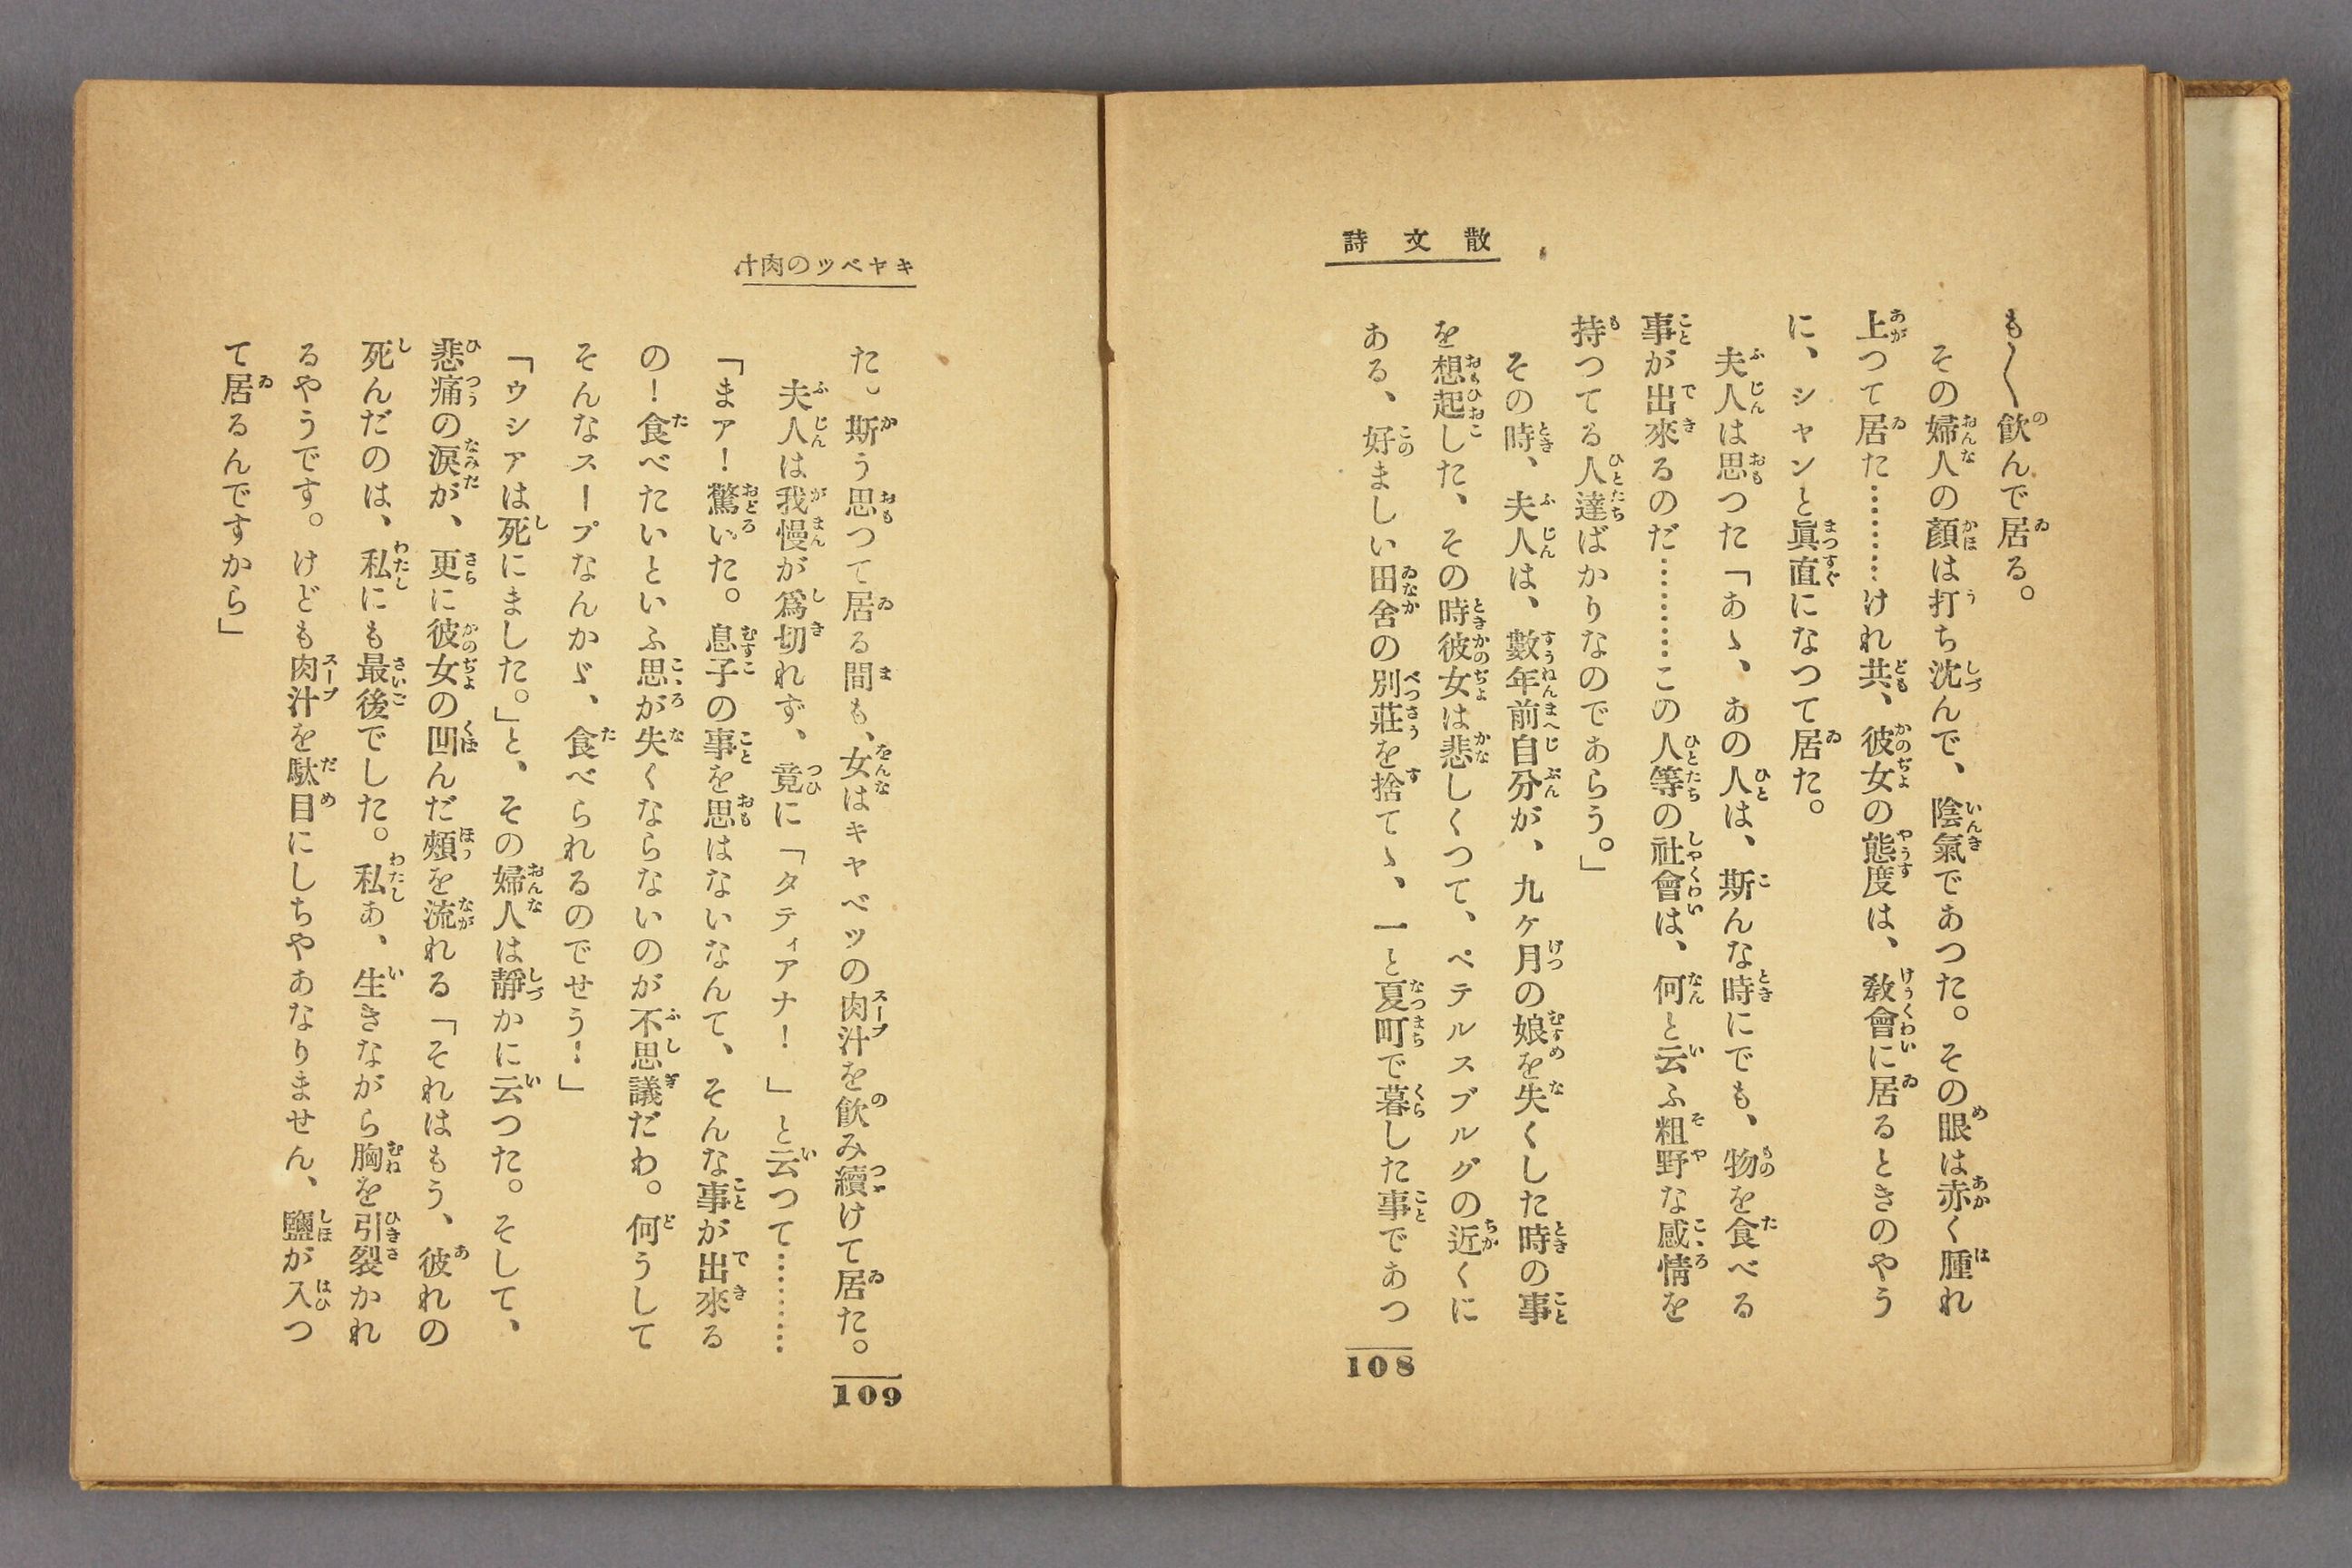 散文詩
も〱飮んで居る。
その婦人の顏は打ち沈んで、陰氣であつた。その眼は赤く腫れ
上つて居た…………けれ共、彼女の態度は、敎會に居るときのやう
に、シャンと眞直になつて居た。
夫人は思つた「あゝ、あの人は、斯んな時にでも、物を食べる
事が出來るのだ…………この人等の社會は、何と云ふ粗野な感情を
持つてる人達ばかりなのであらう。」
その時、夫人は、數年前自分が、九ヶ月の娘を失くした時の事
を想起した、その時彼女は悲しくつて、ペテルスブルグの近くに
ある、好ましい田舍の別莊を捨てゝ、一と夏町で暮した事であつ
108
キヤベツの肉汁
た。斯う思つて居る間も、女はキャベツの肉汁を飮み續けて居た。
夫人は我慢が爲切れず、竟に「タティアナ！」と云つて…………
「まァ！驚いた。息子の事を思はないなんて、そんな事が出來る
の！食べたいといふ思が失くならないのが不思議だわ。何うして
そんなスープなんかゞ、食べられるのでせう！」
「ゥシァは死にました。」と、その婦人は靜かに云つた。そして、
悲痛の淚が、更に彼女の凹んだ頰を流れる「それはもう、彼れの
死んだのは、私にも最後でした。私あ、生きながら胸を引裂かれ
るやうです。けども肉汁を駄目にしちやあなりません、鹽が入つ
て居るんですから」
109